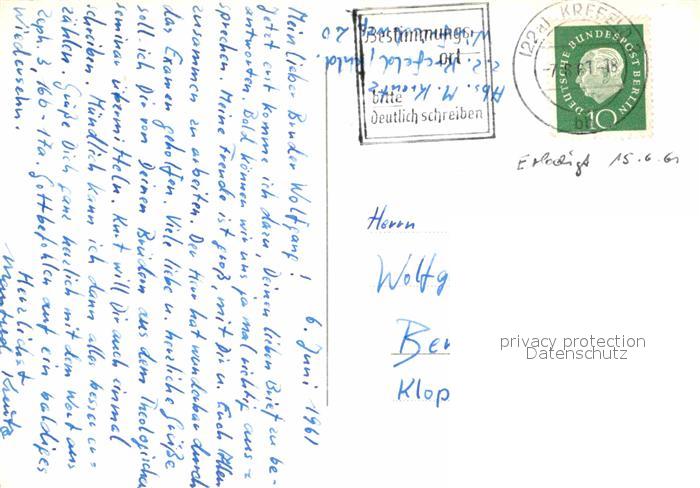 6. Juni 1961
Mein lieber Bruder Wolfgang!
Jetzt erst komme ich dazu, Deinen lieben Brief zu be-
antworten. Bald können wir uns ja mal richtig aus-
sprechen. Meine Freude ist groß, mit Dir u. Euch Allen
zusammen zu arbeiten. Der Herr hat wunderbar durch
das Examen geholfen. Viele liebe u. herzliche Grüße
soll ich Dir von Deinen Brüdern aus dem Theologischen
Seminar übermitteln. Kurt will Dir auch einmal
schreiben. Mündlich kann ich dann alles besser er-
zählen. Grüße Dich ganz herzlich mit dem Wort aus
Zeph. 3, 16b-17a. Gottbefohlen auf ein baldiges
Wiedersehn.
Herzlichst
Manfred Kreutz
Abs. M. Kreutz
z. Z. Krefeld,
20
Bestimmungs-
ort
bitte
deutlich schreiben
(22a) KREFELD
DEUTSCHE BUNDESPOST BERLIN
10
Erledigt 15.6.61
Herrn
Wolfg
Ber
Klop
privacy protection
Datenschutz